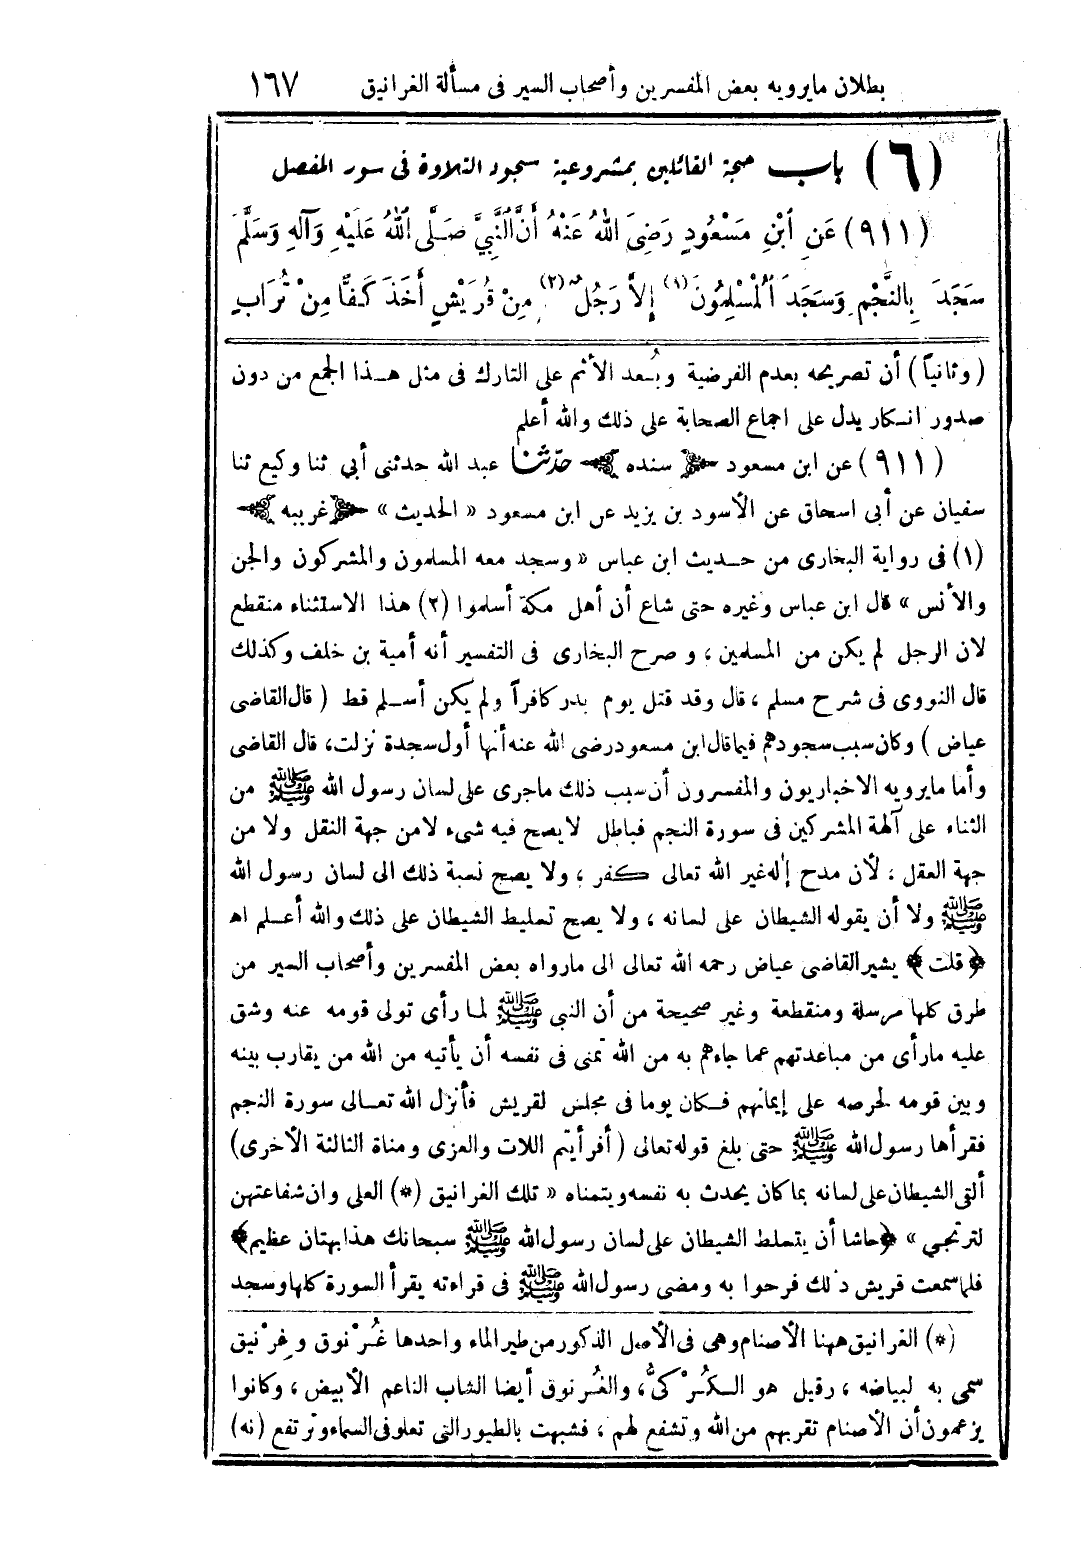 بطلان مايرويه بعض المفسرين وأصحاب السير فى مسألة الغرانيق ١٦٧
(٦) باب حجة القائلين بمشروعية سجود التلاوة فى سور المفصل
(٩١١) عَنِ ابْنِ مَسْعُودٍ رَضِىَ اللهُ عَنْهُ أَنَّ النَّبِيَّ صَلَّى اللهُ عَلَيْهِ وَآلِهِ وَسَلَّمَ
سَجَدَ بِالنَّجْمِ وَسَجَدَ الْمُسْلِمُونَ (١) إِلاَّ رَجُلٌ (٢) مِنْ قُرَيْشٍ أَخَذَ كَفًّا مِنْ تُرَابٍ
(وثانياً) أن تصريحه بعدم الفرضية وبُعد الأثم على التارك فى مثل هـذا الجمع من دون
صدور انـكار يدل على اجماع الصحابة على ذلك والله أعلم
(٩١١) عن ابن مسعود ﴿ سنده ﴾ حدّثنا عبد الله حدثنى أبي ثنا وكيع ثنا
سفيان عن أبى اسحاق عن الأسود بن يزيد عن ابن مسعود « الحديث » ﴿ غريبه ﴾
(١) فى رواية البخارى من حـديث ابن عباس « وسجد معه المسلمون والمشركون والجن
والأنس » قال ابن عباس وغيره حتى شاع أن أهل مكة أسلموا (٢) هذا الاستثناء منقطع
لان الرجل لم يكن من المسلمين ، و صرح البخارى فى التفسير أنه أمية بن خلف وكذلك
قال النووى فى شرح مسلم ، قال وقد قتل يوم بدر كافراً ولم يكن أسـلم قط ( قال القاضى
عياض ) وكان سبب سجودهم فيما قال ابن مسعود رضى الله عنه أنها أول سجدة نزلت، قال القاضى
وأما مايرويه الاخباريون والمفسرون أن سبب ذلك ماجرى على لسان رسول الله ﷺ من
الثناء على آلهة المشركين فى سورة النجم فباطل لايصح فيه شىء لامن جهة النقل ولا من
جهة العقل ، لأن مدح إله غير الله تعالى كفر ، ولا يصح نسبة ذلك الى لسان رسول الله
ﷺ ولا أن يقوله الشيطان على لسانه ، ولا يصح تسليط الشيطان على ذلك والله أعـلم اهـ
﴿ قلت ﴾ يشير القاضى عياض رحمه الله تعالى الى مارواه بعض المفسرين وأصحاب السير من
طرق كلها مرسلة ومنقطعة وغير صحيحة من أن النبى ﷺ لمـا رأى تولى قومه عنه وشق
عليه مارأى من مباعدتهم عما جاءهم به من الله تمنى فى نفسه أن يأتيه من الله من يقارب بينه
وبين قومه لحرصه على إيمانهم فـكان يوما فى مجلس لقريش فأنزل الله تعـالى سورة النجم
فقرأها رسول الله ﷺ حتى بلغ قوله تعالى ( أفرأيتم اللات والعزى ومناة الثالثة الأخرى)
ألقى الشيطان على لسانه بما كان يحدث به نفسه ويتمناه « تلك الغرانيق (*) العلى وان شفاعتهن
لترتجى » ﴿ حاشا أن يتسلط الشيطان على لسان رسول الله ﷺ سبحانك هذا بهتان عظيم ﴾
فلما سمعت قريش ذلك فرحوا به ومضى رسول الله ﷺ فى قراءته يقرأ السورة كلها وسجد
(*) الغرانيق ههنا الأصنام وهى فى الأصل الذكور من طير الماء واحدها غُرْنوق وغِرْنيق
سمى به لبياضه ، رقيل هو الـكُرْكىُّ، والغُرنوق أيضا الشاب الناعم الأبيض ، وكانوا
يزعمون أن الأصنام تقربهم من الله وتشفع لهم ، فشبهت بالطيور التى تعلو فى السماء وترتفع (نه)